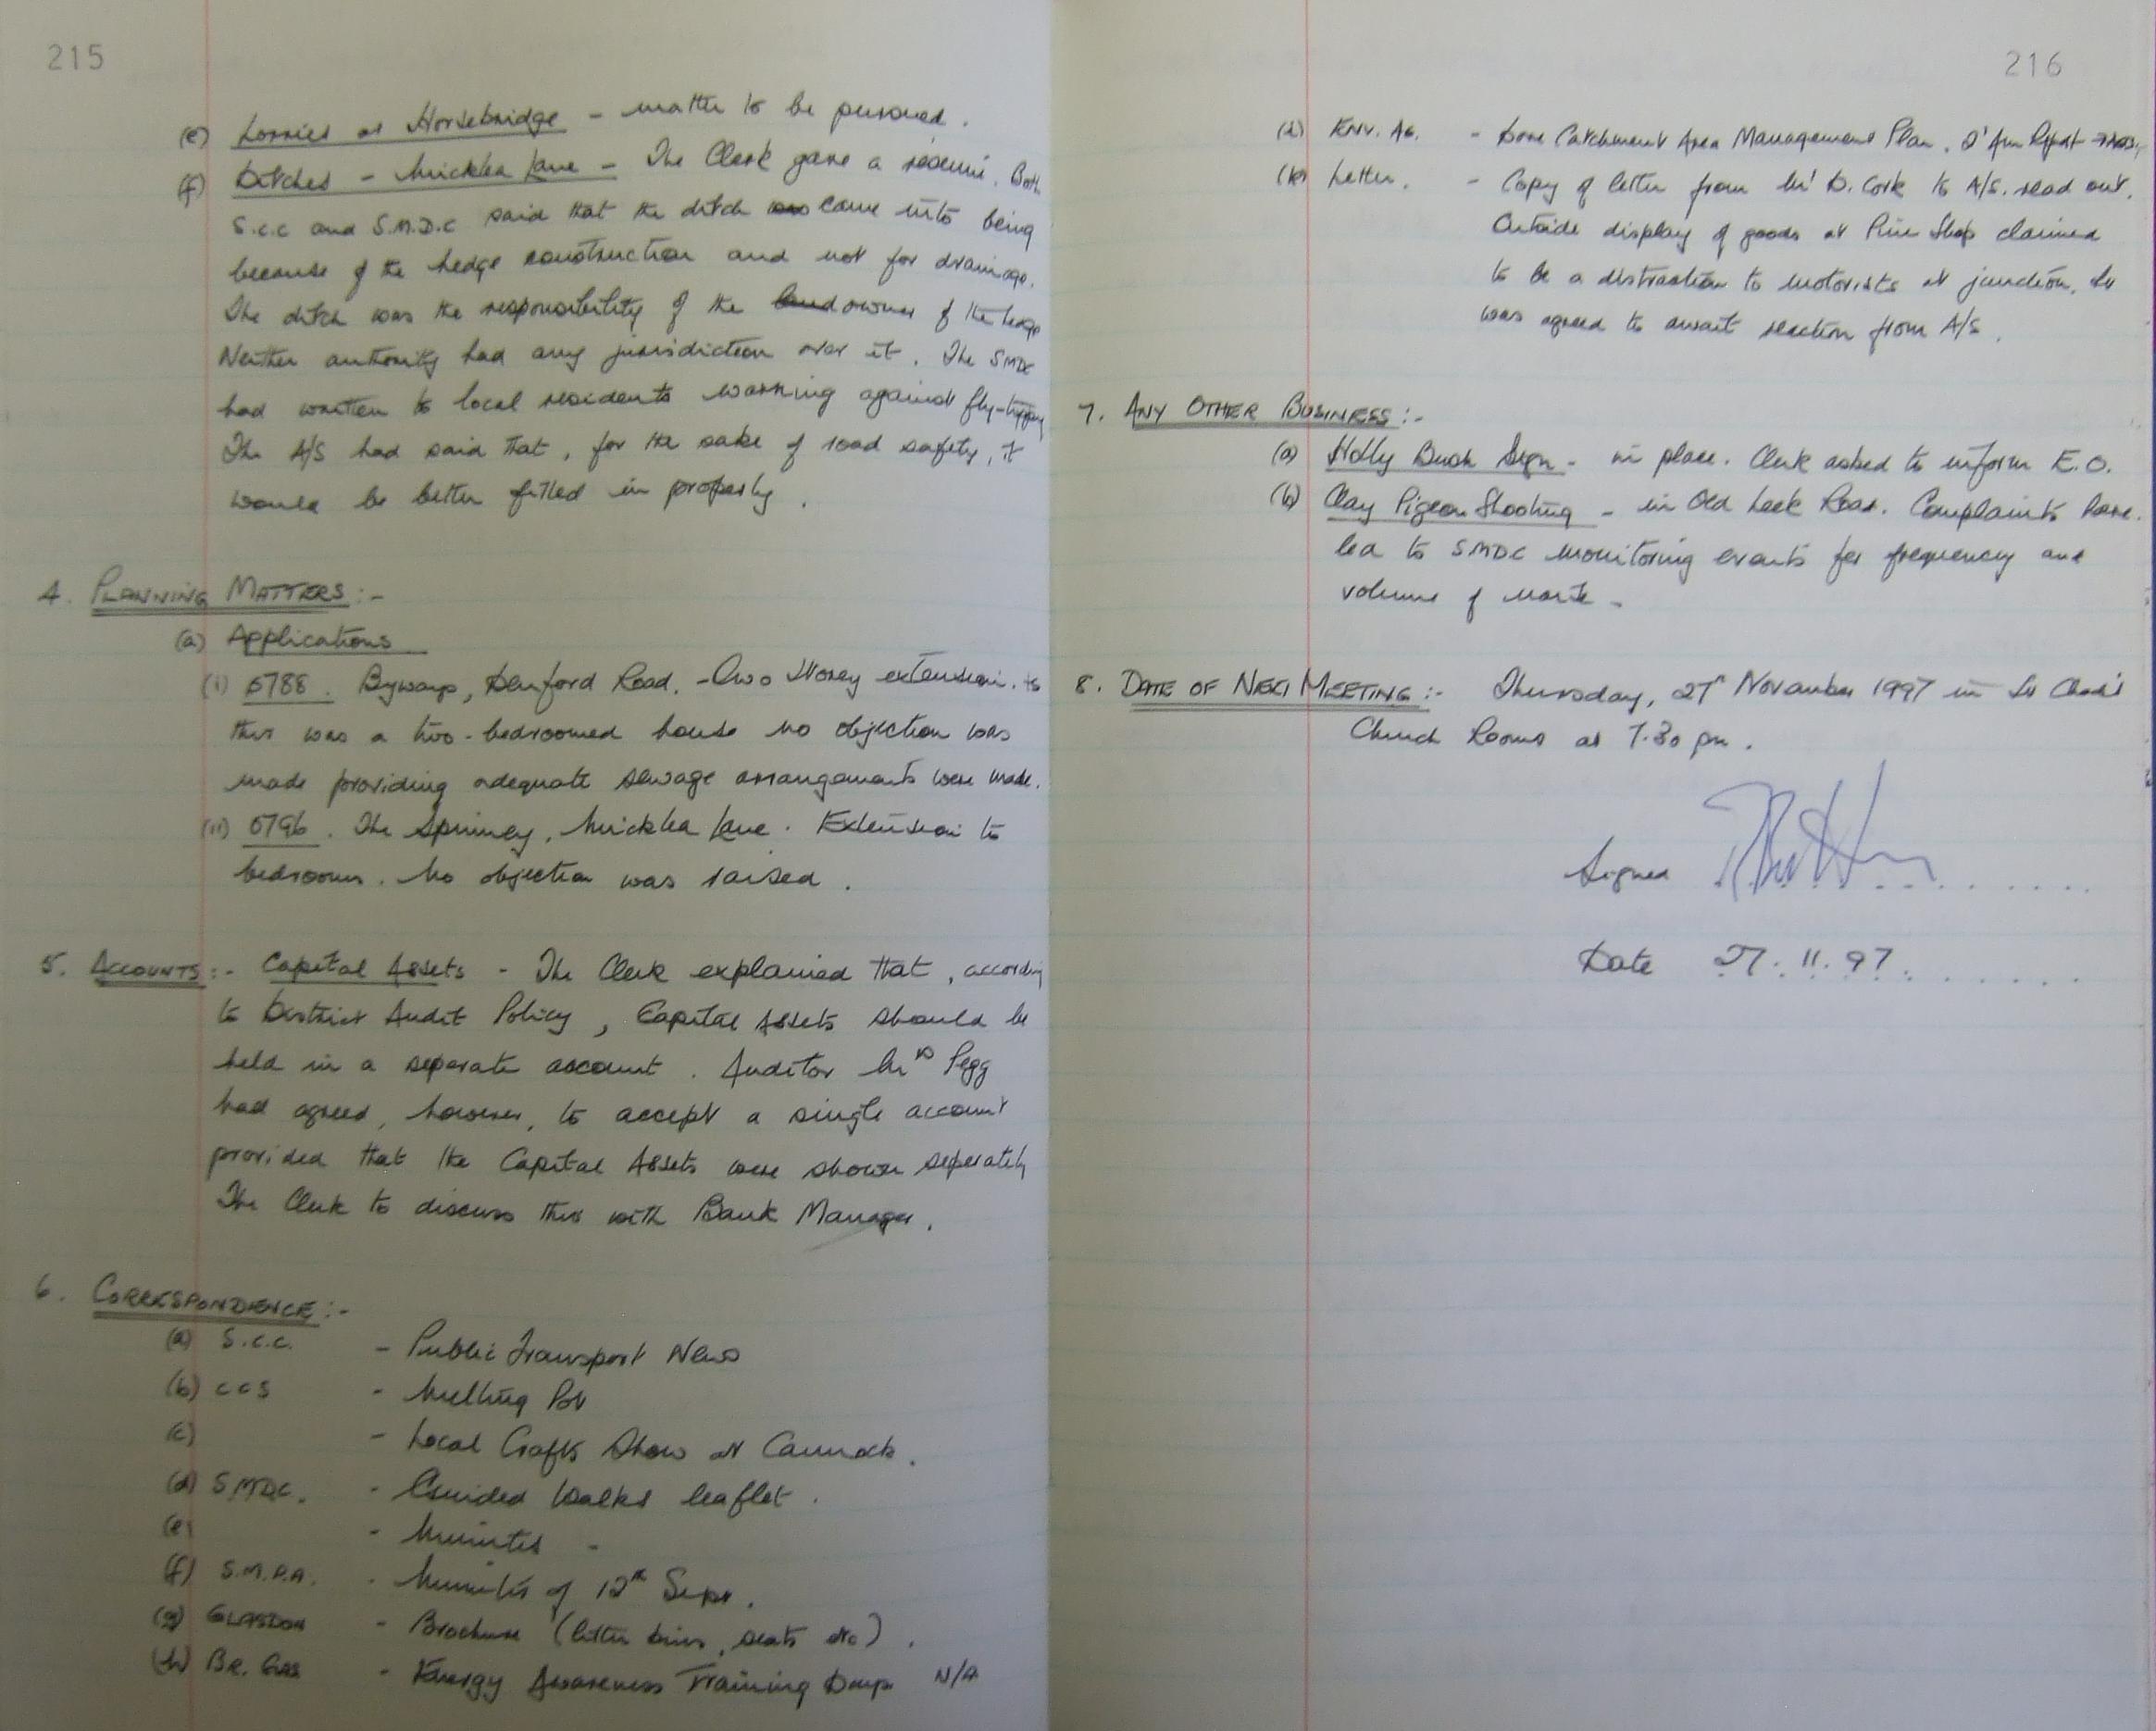 215
(e) Lorries at Horsebridge - matter to be pursued.
(f) Ditches - Micklea Lane - The Clerk gave a résumé. Both
S.C.C and S.M.D.C said that the ditch was came into being
because of the hedge construction and not for drainage.
The ditch was the responsibility of the land owner of the hedge
Neither authority had any jurisdiction over it. The SMDC
had written to local residents warning against fly-tipping
The A/S had said that, for the sake of road safety, it
would be better filled in properly.
4. PLANNING MATTERS:-
(a) Applications
(i) 0788. Byways, Denford Road. - Two Storey extension. As
this was a two-bedroomed house no objection was
made providing adequate sewage arrangements were made.
(ii) 0796. The Spinney, Micklea Lane. Extension to
bedroom. No objection was raised.
5. ACCOUNTS:- Capital Assets - The Clerk explained that, according
to District Audit Policy, Capital Assets should be
held in a separate account. Auditor Mrs Pegg
had agreed, however, to accept a single account
provided that the Capital Assets were shown seperately
The Clerk to discuss this with Bank Manager.
6. CORRESPONDENCE:-
(a) S.C.C. - Public Transport News
(b) CCS - Melting Pot
(c) - Local Crafts Show at Cannock.
(d) SMDC. - Guided Walks leaflet.
(e) - Minutes -
(f) S.M.P.A. - Minutes of 12th Sept.
(g) GLASDON - Brochure (litter bins, seats etc).
(h) BR. GAS - Energy Awareness Training Days N/A
216
ENV. AG. - Dove Catchment Area Management Plan. 1st Ann Report
(k) Letter. - Copy of letter from Mr D. Cork to A/S. read out.
Outside display of goods at Pine Shop claimed
to be a distraction to motorists at junction. It
was agreed to await reaction from A/S.
7. ANY OTHER BUSINESS:-
(a) Holly Bush Sign - in place. Clerk asked to inform E.O.
(b) Clay Pigeon Shooting - in Old Leek Road. Complaints have
led to SMDC monitoring events for frequency and
volume of
8. DATE OF NEXT MEETING:- Thursday, 27th November 1997 in St Chad's
Church Rooms at 7.30 pm.
Signed
Date 27.11.97